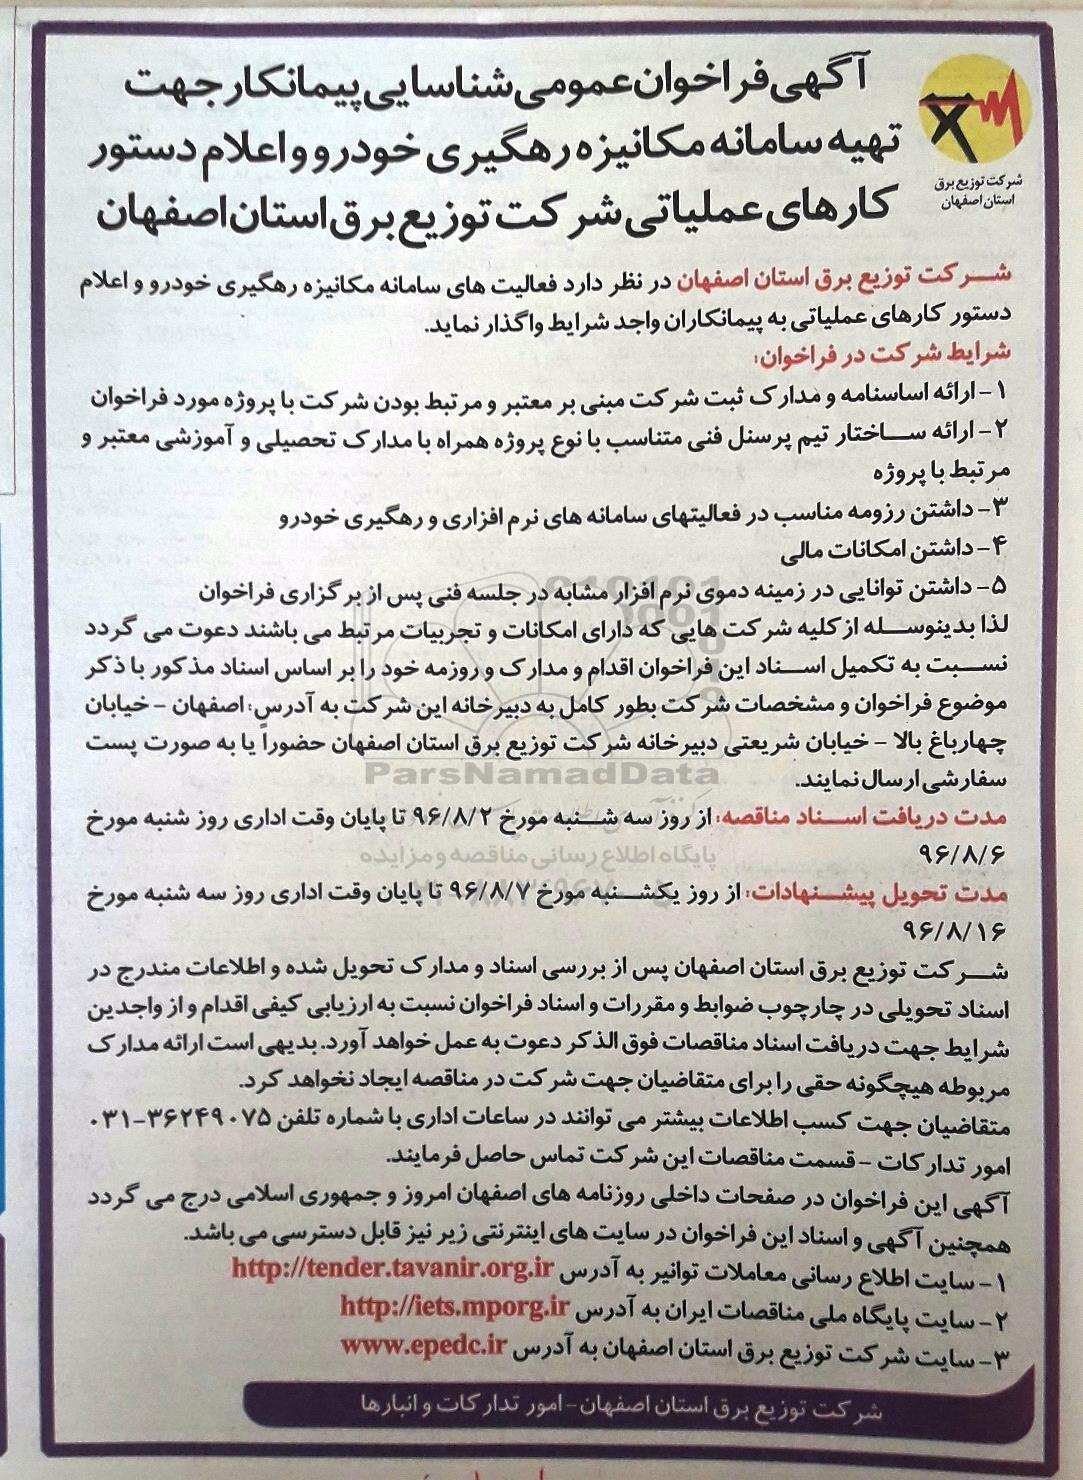 آگهی فراخوان عمومی شناسایی پیمانکار جهت
تهیه سامانه مکانیزه رهگیری خودرو و اعلام دستور
کارهای عملیاتی شرکت توزیع برق استان اصفهان
شرکت توزیع برق
استان اصفهان
شرکت توزیع برق استان اصفهان در نظر دارد فعالیت های سامانه مکانیزه رهگیری خودرو و اعلام
دستور کارهای عملیاتی به پیمانکاران واجد شرایط واگذار نماید.
شرایط شرکت در فراخوان:
۱- ارائه اساسنامه و مدارک ثبت شرکت مبنی بر معتبر و مرتبط بودن شرکت با پروژه مورد فراخوان
۲- ارائه ساختار تیم پرسنل فنی متناسب با نوع پروژه همراه با مدارک تحصیلی و آموزشی معتبر و
مرتبط با پروژه
۳- داشتن رزومه مناسب در فعالیتهای سامانه های نرم افزاری و رهگیری خودرو
۴- داشتن امکانات مالی
۵- داشتن توانایی در زمینه دموی نرم افزار مشابه در جلسه فنی پس از برگزاری فراخوان
لذا بدینوسله از کلیه شرکت هایی که دارای امکانات و تجربیات مرتبط می باشند دعوت می گردد
نسبت به تکمیل اسناد این فراخوان اقدام و مدارک و روزمه خود را بر اساس اسناد مذکور با ذکر
موضوع فراخوان و مشخصات شرکت بطور کامل به دبیرخانه این شرکت به آدرس: اصفهان - خیابان
چهارباغ بالا - خیابان شریعتی دبیرخانه شرکت توزیع برق استان اصفهان حضوراً یا به صورت پست
سفارشی ارسال نمایند.
ParsNamadData
مدت دریافت اسناد مناقصه: از روز سه شنبه مورخ ۹۶/۸/۲ تا پایان وقت اداری روز شنبه مورخ
۹۶/۸/۶
پایگاه اطلاع رسانی مناقصه و مزایده
مدت تحویل پیشنهادات: از روز یکشنبه مورخ ۹۶/۸/۷ تا پایان وقت اداری روز سه شنبه مورخ
۹۶/۸/۱۶
شرکت توزیع برق استان اصفهان پس از بررسی اسناد و مدارک تحویل شده و اطلاعات مندرج در
اسناد تحویلی در چارچوب ضوابط و مقررات و اسناد فراخوان نسبت به ارزیابی کیفی اقدام و از واجدین
شرایط جهت دریافت اسناد مناقصات فوق الذکر دعوت به عمل خواهد آورد. بدیهی است ارائه مدارک
مربوطه هیچگونه حقی را برای متقاضیان جهت شرکت در مناقصه ایجاد نخواهد کرد.
متقاضیان جهت کسب اطلاعات بیشتر می توانند در ساعات اداری با شماره تلفن ۳۶۲۴۹۰۷۵-۰۳۱
امور تدارکات - قسمت مناقصات این شرکت تماس حاصل فرمایند.
آگهی این فراخوان در صفحات داخلی روزنامه های اصفهان امروز و جمهوری اسلامی درج می گردد
همچنین آگهی و اسناد این فراخوان در سایت های اینترنتی زیر نیز قابل دسترسی می باشد.
۱- سایت اطلاع رسانی معاملات توانیر به آدرس http://tender.tavanir.org.ir
۲- سایت پایگاه ملی مناقصات ایران به آدرس http://iets.mporg.ir
۳- سایت شرکت توزیع برق استان اصفهان به آدرس www.epedc.ir
شرکت توزیع برق استان اصفهان - امور تدارکات و انبارها